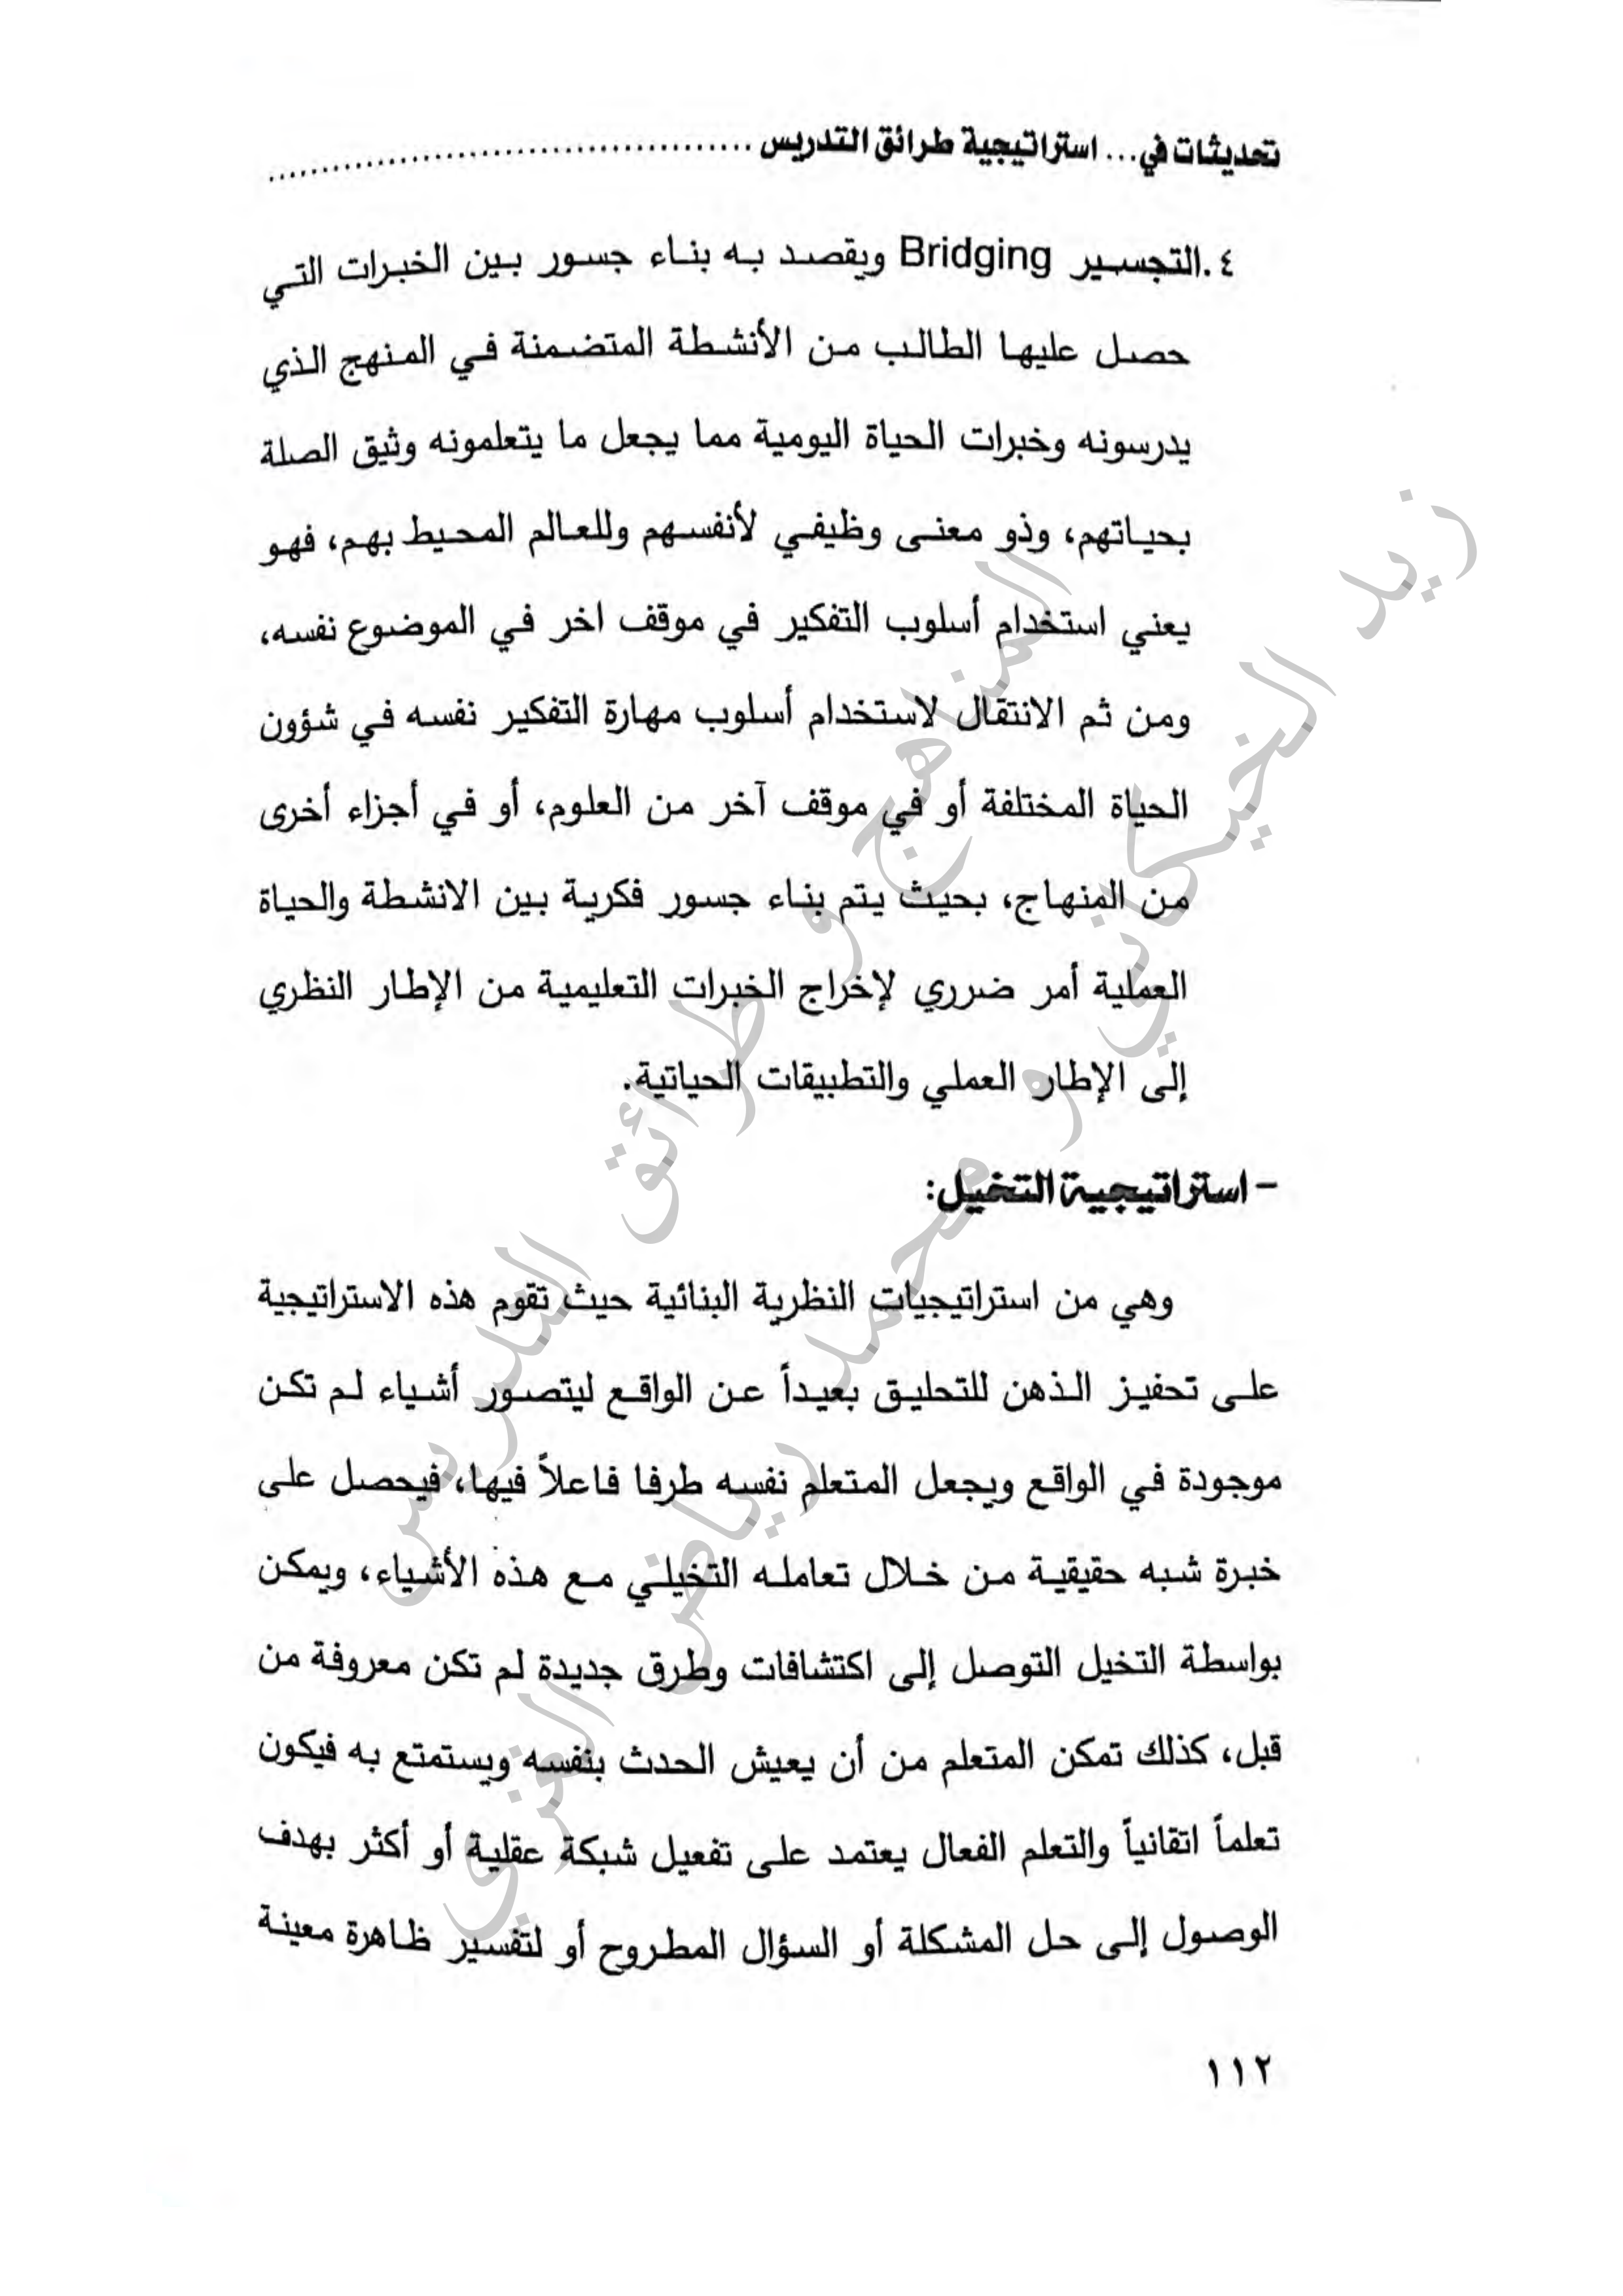 تحديثات في... استراتيجية طرائق التدريس ........................................
٤.التجسير Bridging ويقصد به بناء جسور بين الخبرات التي
حصل عليها الطالب من الأنشطة المتضمنة في المنهج الذي
يدرسونه وخبرات الحياة اليومية مما يجعل ما يتعلمونه وثيق الصلة
بحياتهم، وذو معنى وظيفي لأنفسهم وللعالم المحيط بهم، فهو
يعني استخدام أسلوب التفكير في موقف اخر في الموضوع نفسه،
ومن ثم الانتقال لاستخدام أسلوب مهارة التفكير نفسه في شؤون
الحياة المختلفة أو في موقف آخر من العلوم، أو في أجزاء أخرى
من المنهاج، بحيث يتم بناء جسور فكرية بين الانشطة والحياة
العملية أمر ضرري لإخراج الخبرات التعليمية من الإطار النظري
إلى الإطار العملي والتطبيقات الحياتية.
- استراتيجية التخيل:
وهي من استراتيجيات النظرية البنائية حيث تقوم هذه الاستراتيجية
على تحفيز الذهن للتحليق بعيداً عن الواقع ليتصور أشياء لم تكن
موجودة في الواقع ويجعل المتعلم نفسه طرفا فاعلاً فيها، فيحصل على
خبرة شبه حقيقية من خلال تعامله التخيلي مع هذه الأشياء، ويمكن
بواسطة التخيل التوصل إلى اكتشافات وطرق جديدة لم تكن معروفة من
قبل، كذلك تمكن المتعلم من أن يعيش الحدث بنفسه ويستمتع به فيكون
تعلماً اتقانياً والتعلم الفعال يعتمد على تفعيل شبكة عقلية أو أكثر بهدف
الوصول إلى حل المشكلة أو السؤال المطروح أو لتفسير ظاهرة معينة
١١٢
المناهج و طرائق التدريس
زيد الخيكاني و محمد رياض الغزي